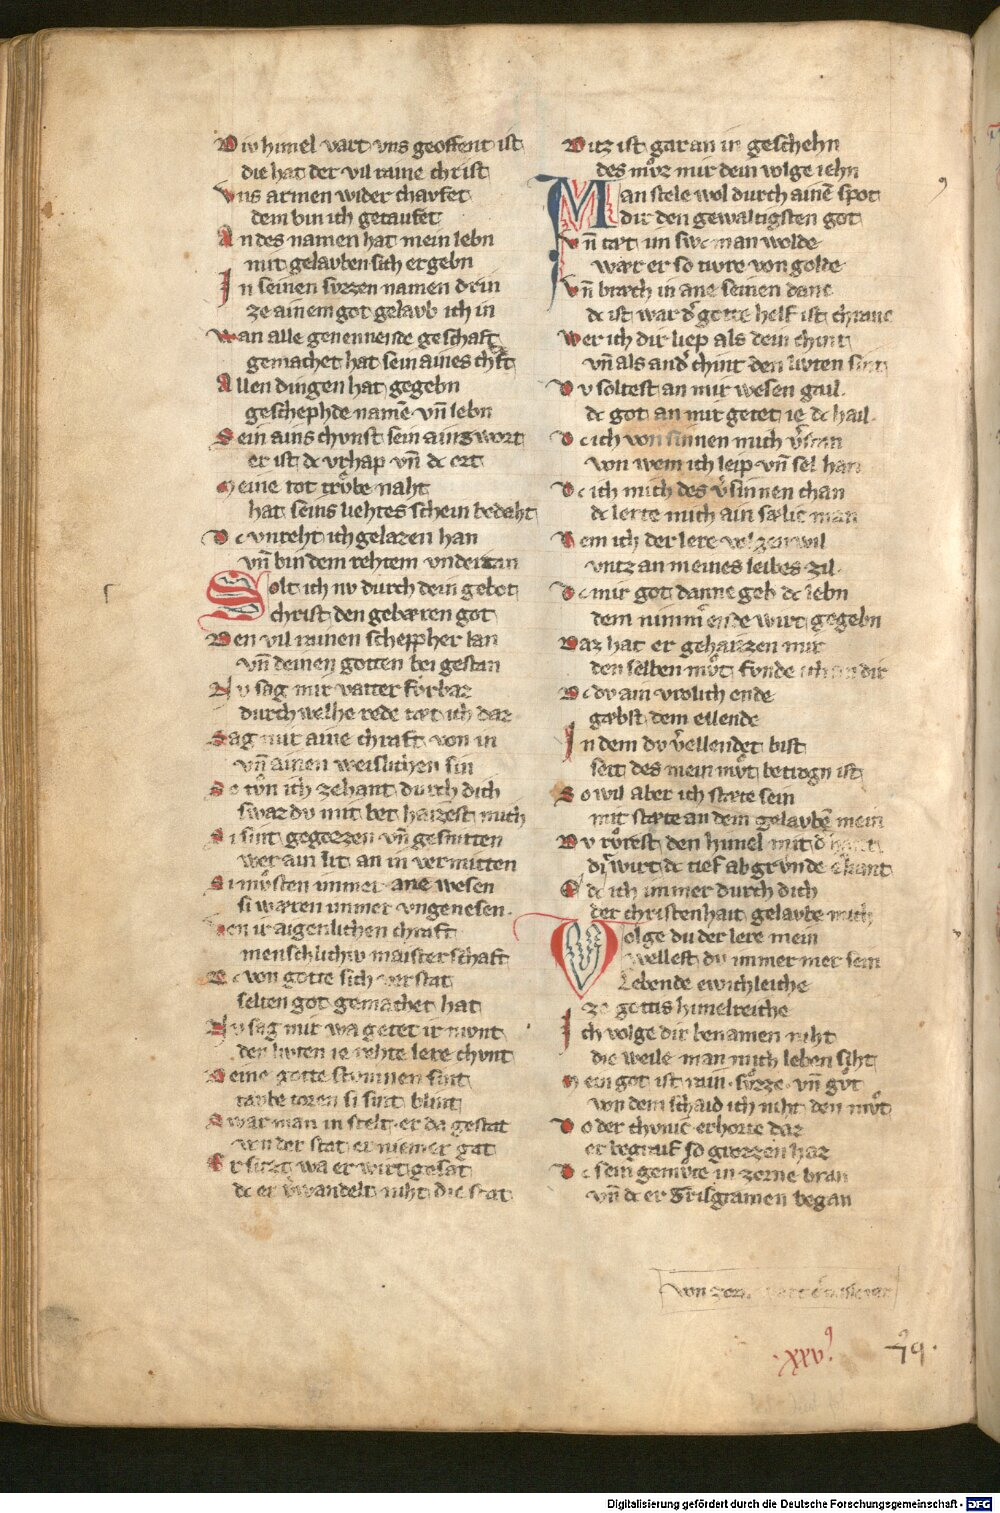 Diw himel vart vns geoffent ist
die hat der vil raine christ
Vns armen wider charfet
dem bin ich getaufet
An des namen hat mein lebn
mit gelauben sich ergebn
In seinen svzzen namen drin
ze ainem got gelaub ich in
Wan alle genennende geschaft
gemachet hat sein aines chft
Allen dingen hat gegebn
geschephde namē vn̄ lebn
Sein ains chvnst sein ains wort
er ist dc vrhap vn̄ dc ort
Meine tot trvͤbe naht
hat seins liehtes schein bedeht
Dc vnreht ich gelazen han
vn̄ bin dem rehtem vndertan
Solt ich nv durch dein gebot
christ den gebæren got
Den vil rainen schepher lan
vn̄ deinen gotten bei gestan
Nv sag mir vatter fvͤrbaz
durch welhe rede tæt ich daz
Sag mir aine chraft von in
vn̄ ainen weislichen sin
So tvͦn ich zehant durch dich
swaz dv mit bet haizest mich
Si sint gegozzen vn̄ gesnitten
wer ain lit an in vermitten
Si mvͤsten immer ane wesen
si wæren immer vngenesen.
Den ir aigenlichen chraft
menschlichiv maisterschaft
Dc von gotte sich verstat
selten got gemachet hat
Nv sag mir wa getet ir mvnt
den livten ie rehte lere chvnt
Deine gotte stommen sint
taube toren si sint blint
Swar man in stelt er da gestat
von der stat er niemer gat
Er sitzt wa er wirt gesat
dc er v̄wandelt niht die stat
Ditz ist gar an in geschehn
des mvͦz mir dein volge iehn
Man stele wol durch ainē spot
dir den gewaltigsten got
Vn̄ tæt im swe man wolde
wær er so tivre von golde
Vn̄ bræch in ane seinen danc
dc ist war d̾ gotte helf ist chranc
Wer ich dir liep als dein chint
vn̄ als and̾ chint den livten sint
Dv soltest an mir wesen gail
dc got an mir getet ie dc hail.
Dc ich von sinnen mich v̄stan
von wem ich leip vn̄ sel han
Dc ich mich des v̄sinnen chan
dc lerte mich ain sælic man
Dem ich der lere volgen wil
vntz an meines leibes zil.
Dc mir got danne geb dc lebn
dem nimm̄ ende wirt gegebn
Daz hat er gehaizzen mir
den selben mvͦt funde ich an dir
Dc dv ain vrolich ende
gæbst dem ellende
In dem dv v̄ellendet bist
seit des mein mvͦt betrogn ist
So wil aber ich stæte sein
mit stæte an dem gelaubē mein
Dv rvͦrest den himel mit d̾ hant
dir wirt dc tief abgrvnde
dc ich immer durch dich
der christenhait gelaube mich
Volge du der lere mein
wellest dv immer mer sein
Lebende ewichleiche
ze gottis himelreiche
Ich volge dir benamen niht
die weile man mich leben siht
Mein got ist rain svͤzze vn̄ gvͦt
von dem schaid ich niht den mvͦt
Do der chvnic erhorte daz
er begraif so grozzen haz
Dc sein gemvte in zorne bran
vn̄ dc er Grisgramen began
von zorn
.xxv9.
79.
Digitalisierung gefördert durch die Deutsche Forschungsgemeinschaft - DFG